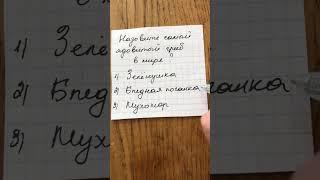 Назовите самый
ядовитый гриб
в мире
1) Зелёнушка
2) Бледная поганка
3) Мухомор
1) Зелё
2) Бледная поганка
3) Мухо